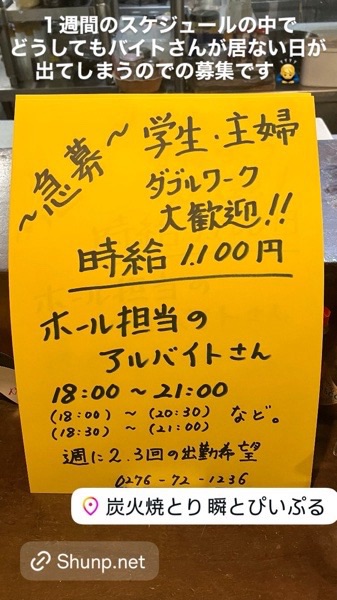 １週間のスケジュールの中で
どうしてもバイトさんが居ない日が
出てしまうのでの募集です🙇
～急募～
学生・主婦
ダブルワーク
大歓迎!!
時給 1.100円
ホール担当の
アルバイトさん
18:00～21:00
(18:00)～(20:30)
(18:30)～(21:00)
など。
週に2.3回の出勤希望
0276-72-1236
炭火焼とり 瞬とぴいぷる
Shunp.net